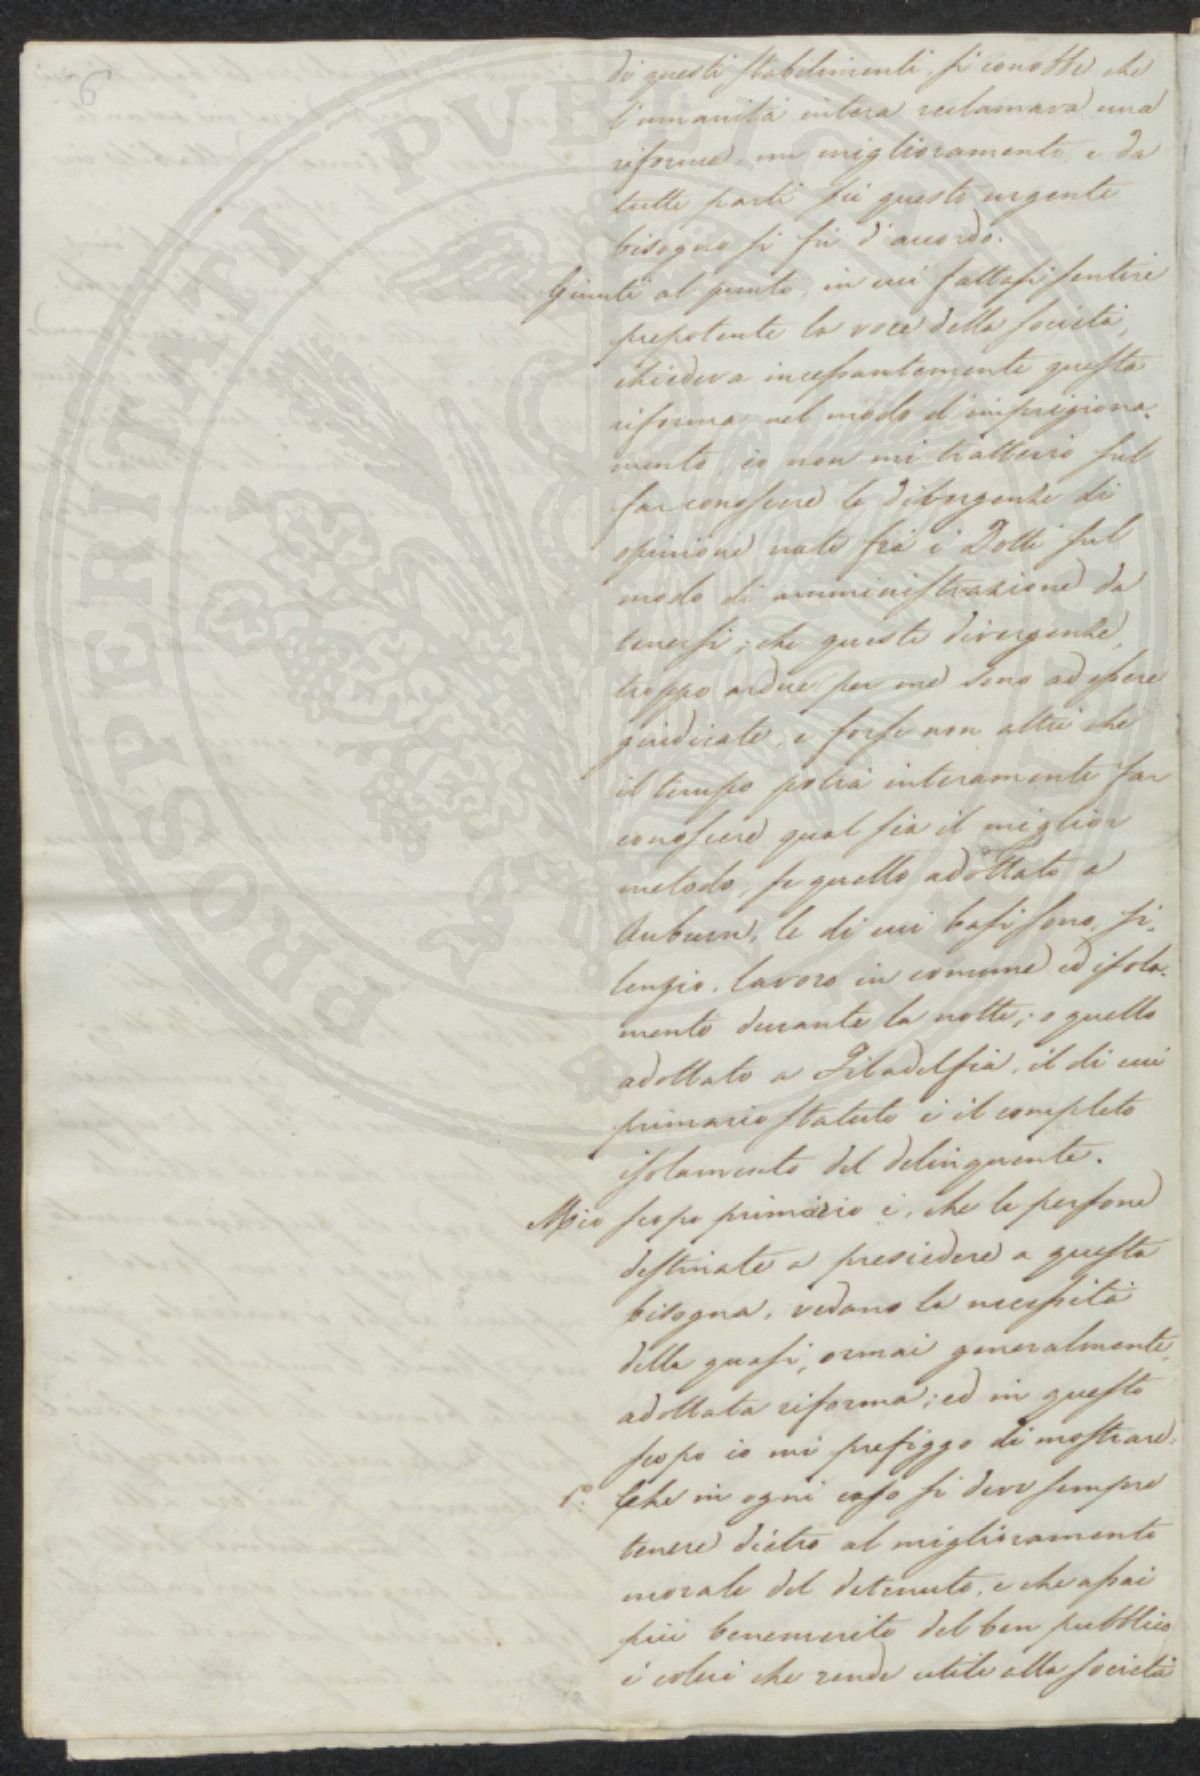 6
di questi stabilimenti, si conobbe che
l'umanità intera reclamava una
riforma, un miglioramento, e da
tutte parti su questo urgente
bisogno si fù d'accordo.
Giunti al punto, in cui fattasi sentire
prepotente la voce della società,
chiedeva incessantemente questa
riforma nel modo d'imprigiona-
mento, io non mi tratterrò sul
far conoscere le divergenze di
opinione nate frà i Dotti sul
modo di amministrazione da
tenersi; che queste divergenze,
troppo ardue per me sono ad essere
giudicate, e forse non altri che
il tempo potrà interamente far
conoscere qual sia il miglior
metodo, se quello adottato a
Auburn, le di cui basi sono, si-
lenzio, lavoro in comune ed isola-
mento durante la notte; o quello
adottato a Filadelfia, il di cui
primario statuto è il completo
isolamento del delinquente.
Mio scopo primario è, che le persone
destinate a presiedere a questa
bisogna, vedano la necessità
della quasi, ormai generalmente,
adottata riforma; ed in questo
scopo io mi prefiggo di mostrare.
1º: Che in ogni caso si deve sempre
tenere dietro al miglioramento
morale del detenuto, e che assai
più benemerito del ben pubblico
è colui che rende utile alla società
PROSPERITATI PUBLICAE